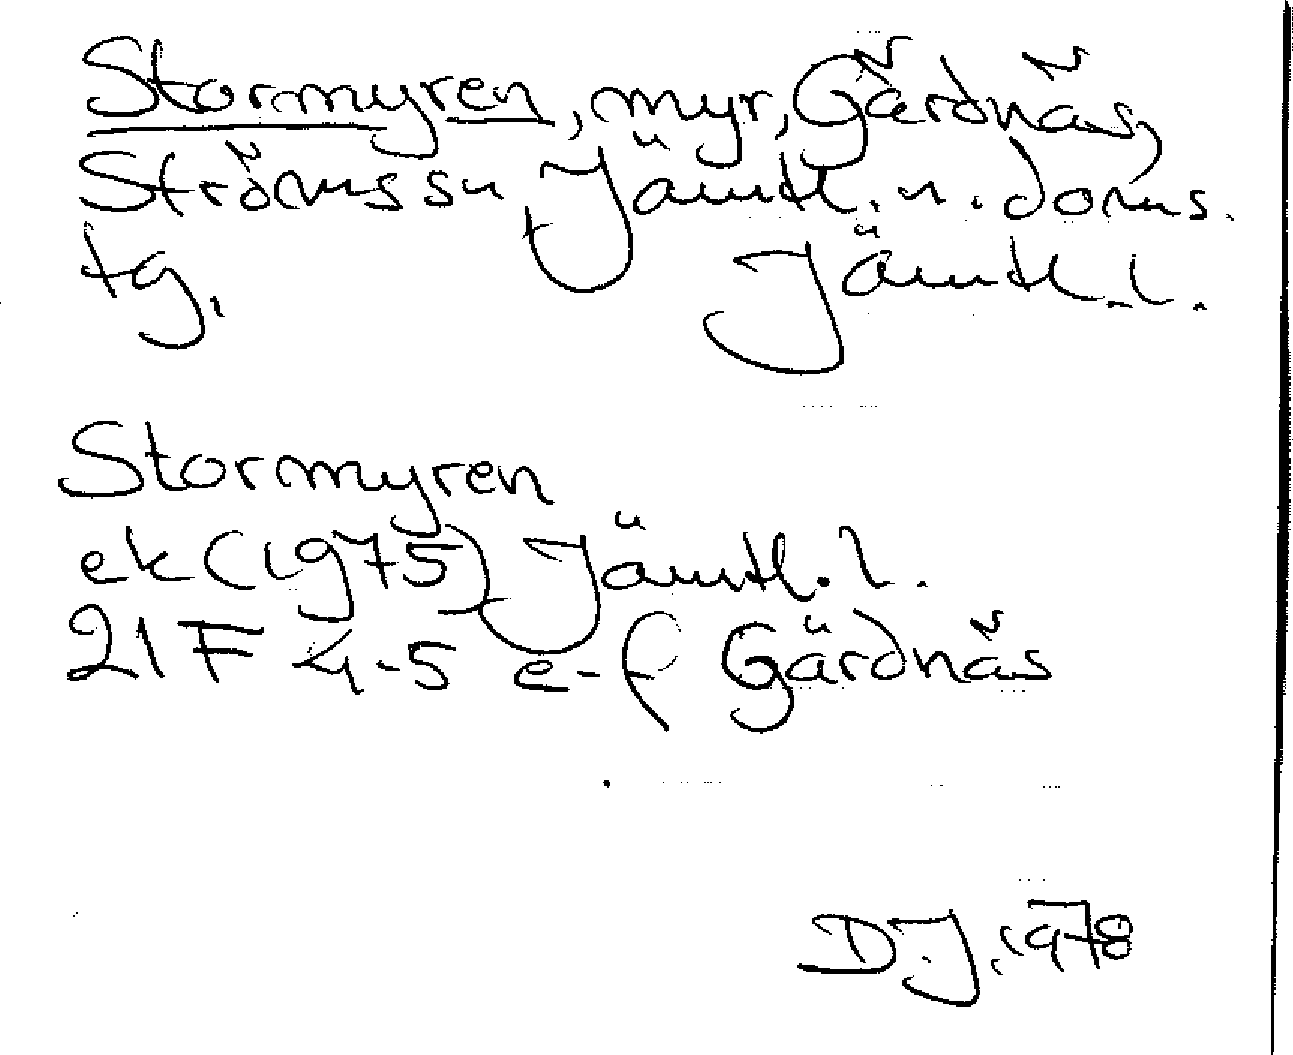 Stormyren, myr, Gärdnäs,
Ströms sn Jämtl. n. doms.
tg. Jämtl. l.
Stormyren
ek (1975) Jämtl. l.
21 F 4-5 e-f Gärdnäs
D.J. 1978